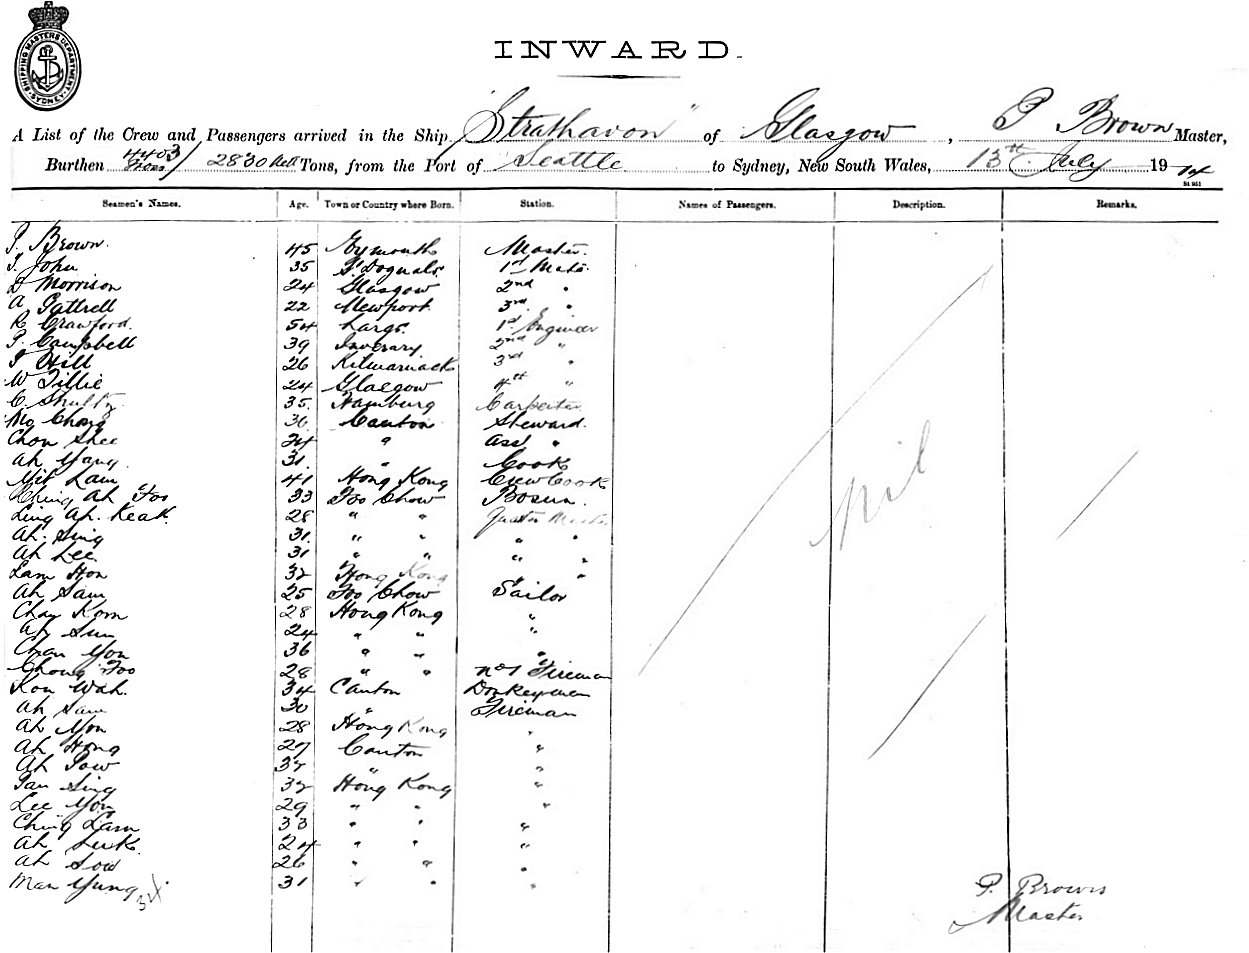 SHIPPING MASTERS DEPARTMENT SYDNEY
INWARD.
A List of the Crew and Passengers arrived in the Ship "Strathavon" of Glasgow, P Brown Master,
Burthen 4403 Gross / 2830 Nett Tons, from the Port of Seattle to Sydney, New South Wales, 13th July 1914
St 951
Seamen's Names. Age. Town or Country where Born. Station. Names of Passengers. Description. Remarks.
P. Brown. 45 Eymouth Master.
J. John 35 St Dogmals 1st Mate.
D Morrison 24 Glasgow 2nd "
A Gattrell 22 Newport 3rd "
R Crawford. 54 Largs. 1st Engineer
P. Campbell 39 Inverary 2nd "
J Hill 26 Kilmarnack 3rd "
W Tillie 24 Glasgow 4th "
C. Shultz 35. Hamburg Carpenter
Mo Chong 36 Canton Steward.
Chow Shee 24 " Ass "
Ah Yang. 31. " Cook
Mit Lam 41 Hong Kong Crew Cook
Ching Ah Foo 33 Foo Chow Bosun.
Ling Ah. Keak. 28 " " Quarter Master
Ah. Sing 31. " " " "
Ah Lee. 31 " " " "
Lam Hon 32 Hong Kong " "
Ah Sam 25 Foo Chow Sailor
Chay Kom 28 Hong Kong "
Ah Sun 24 " " "
Chan Yon 36 " " "
Chong Foo 28 " " No 1 Fireman
Kon Wah. 34 Canton Donkeyman
Ah Sam 30 " Fireman
Ah Mon 28 Hong Kong "
Ah Hong 27 Canton "
Ah Pow 32 " "
Tan Sing 32 Hong Kong "
Lee Yon 29 " " "
Ching Lam 33 " " "
Ah Luk. 24 " " "
Ah Sow 26 " " "
Man Yung 31 " " "
34
Nil
P. Brown
Master